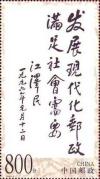 发展现代化邮政
滿足社會需要
江澤民
一九九六年九月十二日
800分
中国邮政
CHINA